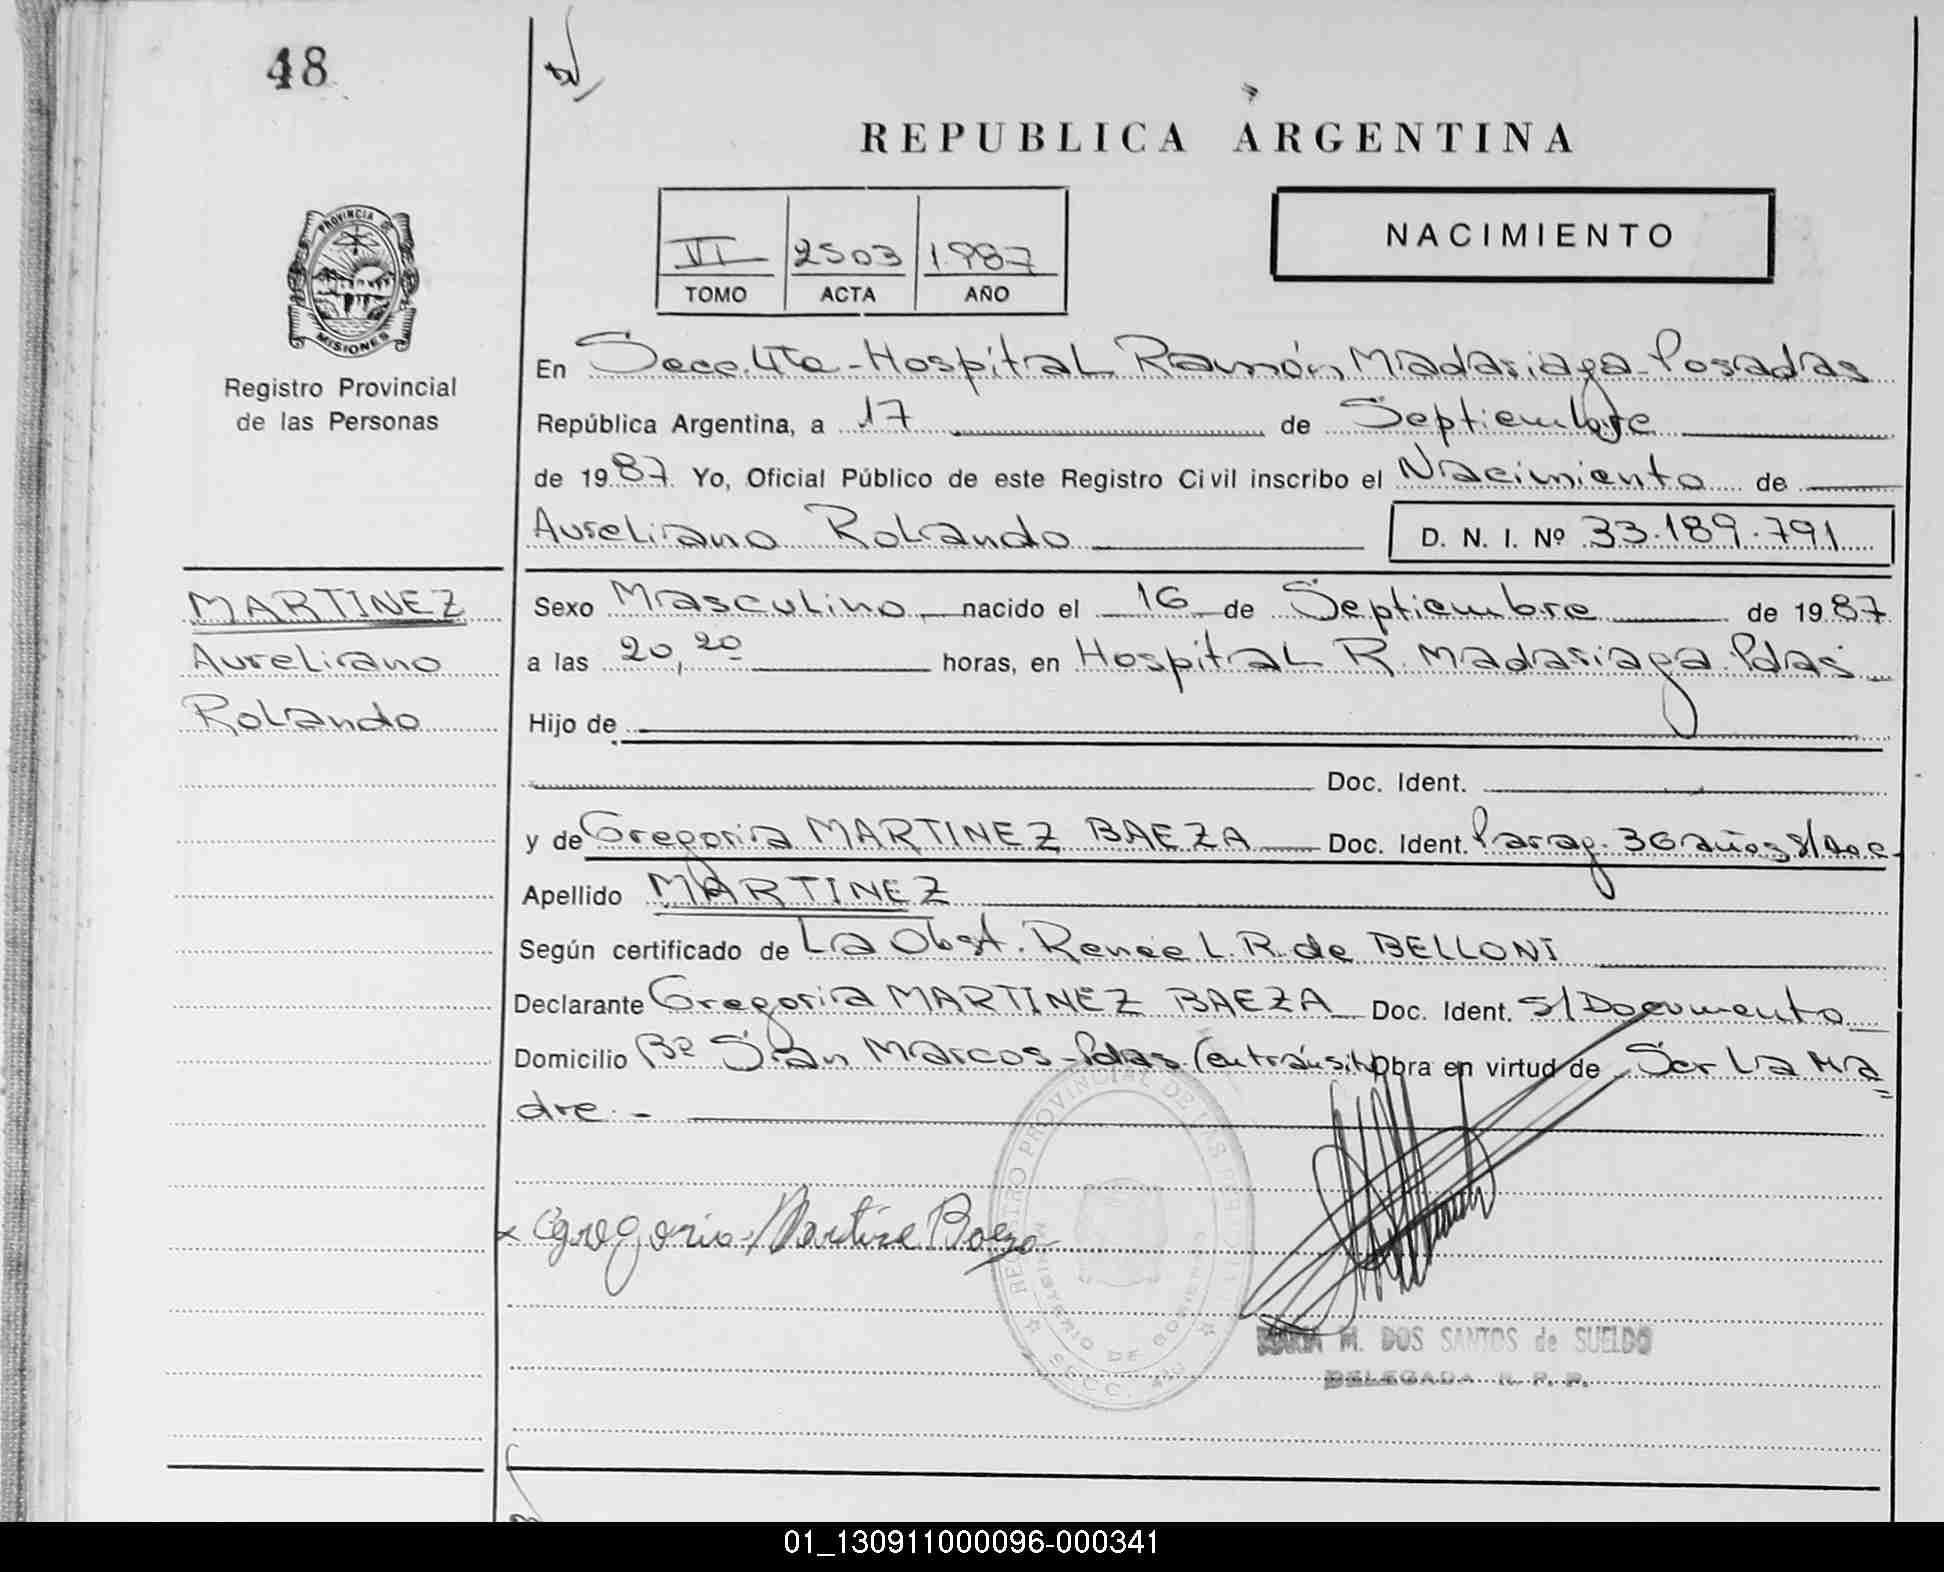 48
REPUBLICA ARGENTINA
NACIMIENTO
VI 2503 1987
TOMO ACTA AÑO
PROVINCIA DE
MISIONES
Registro Provincial
de las Personas
En Secc. 4ta - Hospital Ramón Madariaga - Posadas
República Argentina, a 17 de Septiembre
de 1987. Yo, Oficial Público de este Registro Civil inscribo el Nacimiento de
Aureliano Rolando D. N. I. Nº 33.189.791
MARTINEZ
Aureliano
Rolando
Sexo Masculino nacido el 16 de Septiembre de 1987
a las 20,20 horas, en Hospital R. Madariaga. Pdas
Hijo de
Doc. Ident.
y de Gregoria MARTINEZ BAEZA Doc. Ident. Parag. 36 años s/doc.
Apellido MARTINEZ
Según certificado de La Obst. Renée L. R. de BELLONI
Declarante Gregoria MARTINEZ BAEZA Doc. Ident. s/Documento
Domicilio Bº San Marcos - Pdas. (en tránsito) Obra en virtud de Ser La Ma
dre. -
x Gregoria Martine Baeza
REGISTRO PROVINCIAL DE LAS
MINISTERIO DE GOBIERNO
SECC. 4
M. DOS SANTOS de SUELDO
DELEGADA R. P. P.
01_130911000096-000341